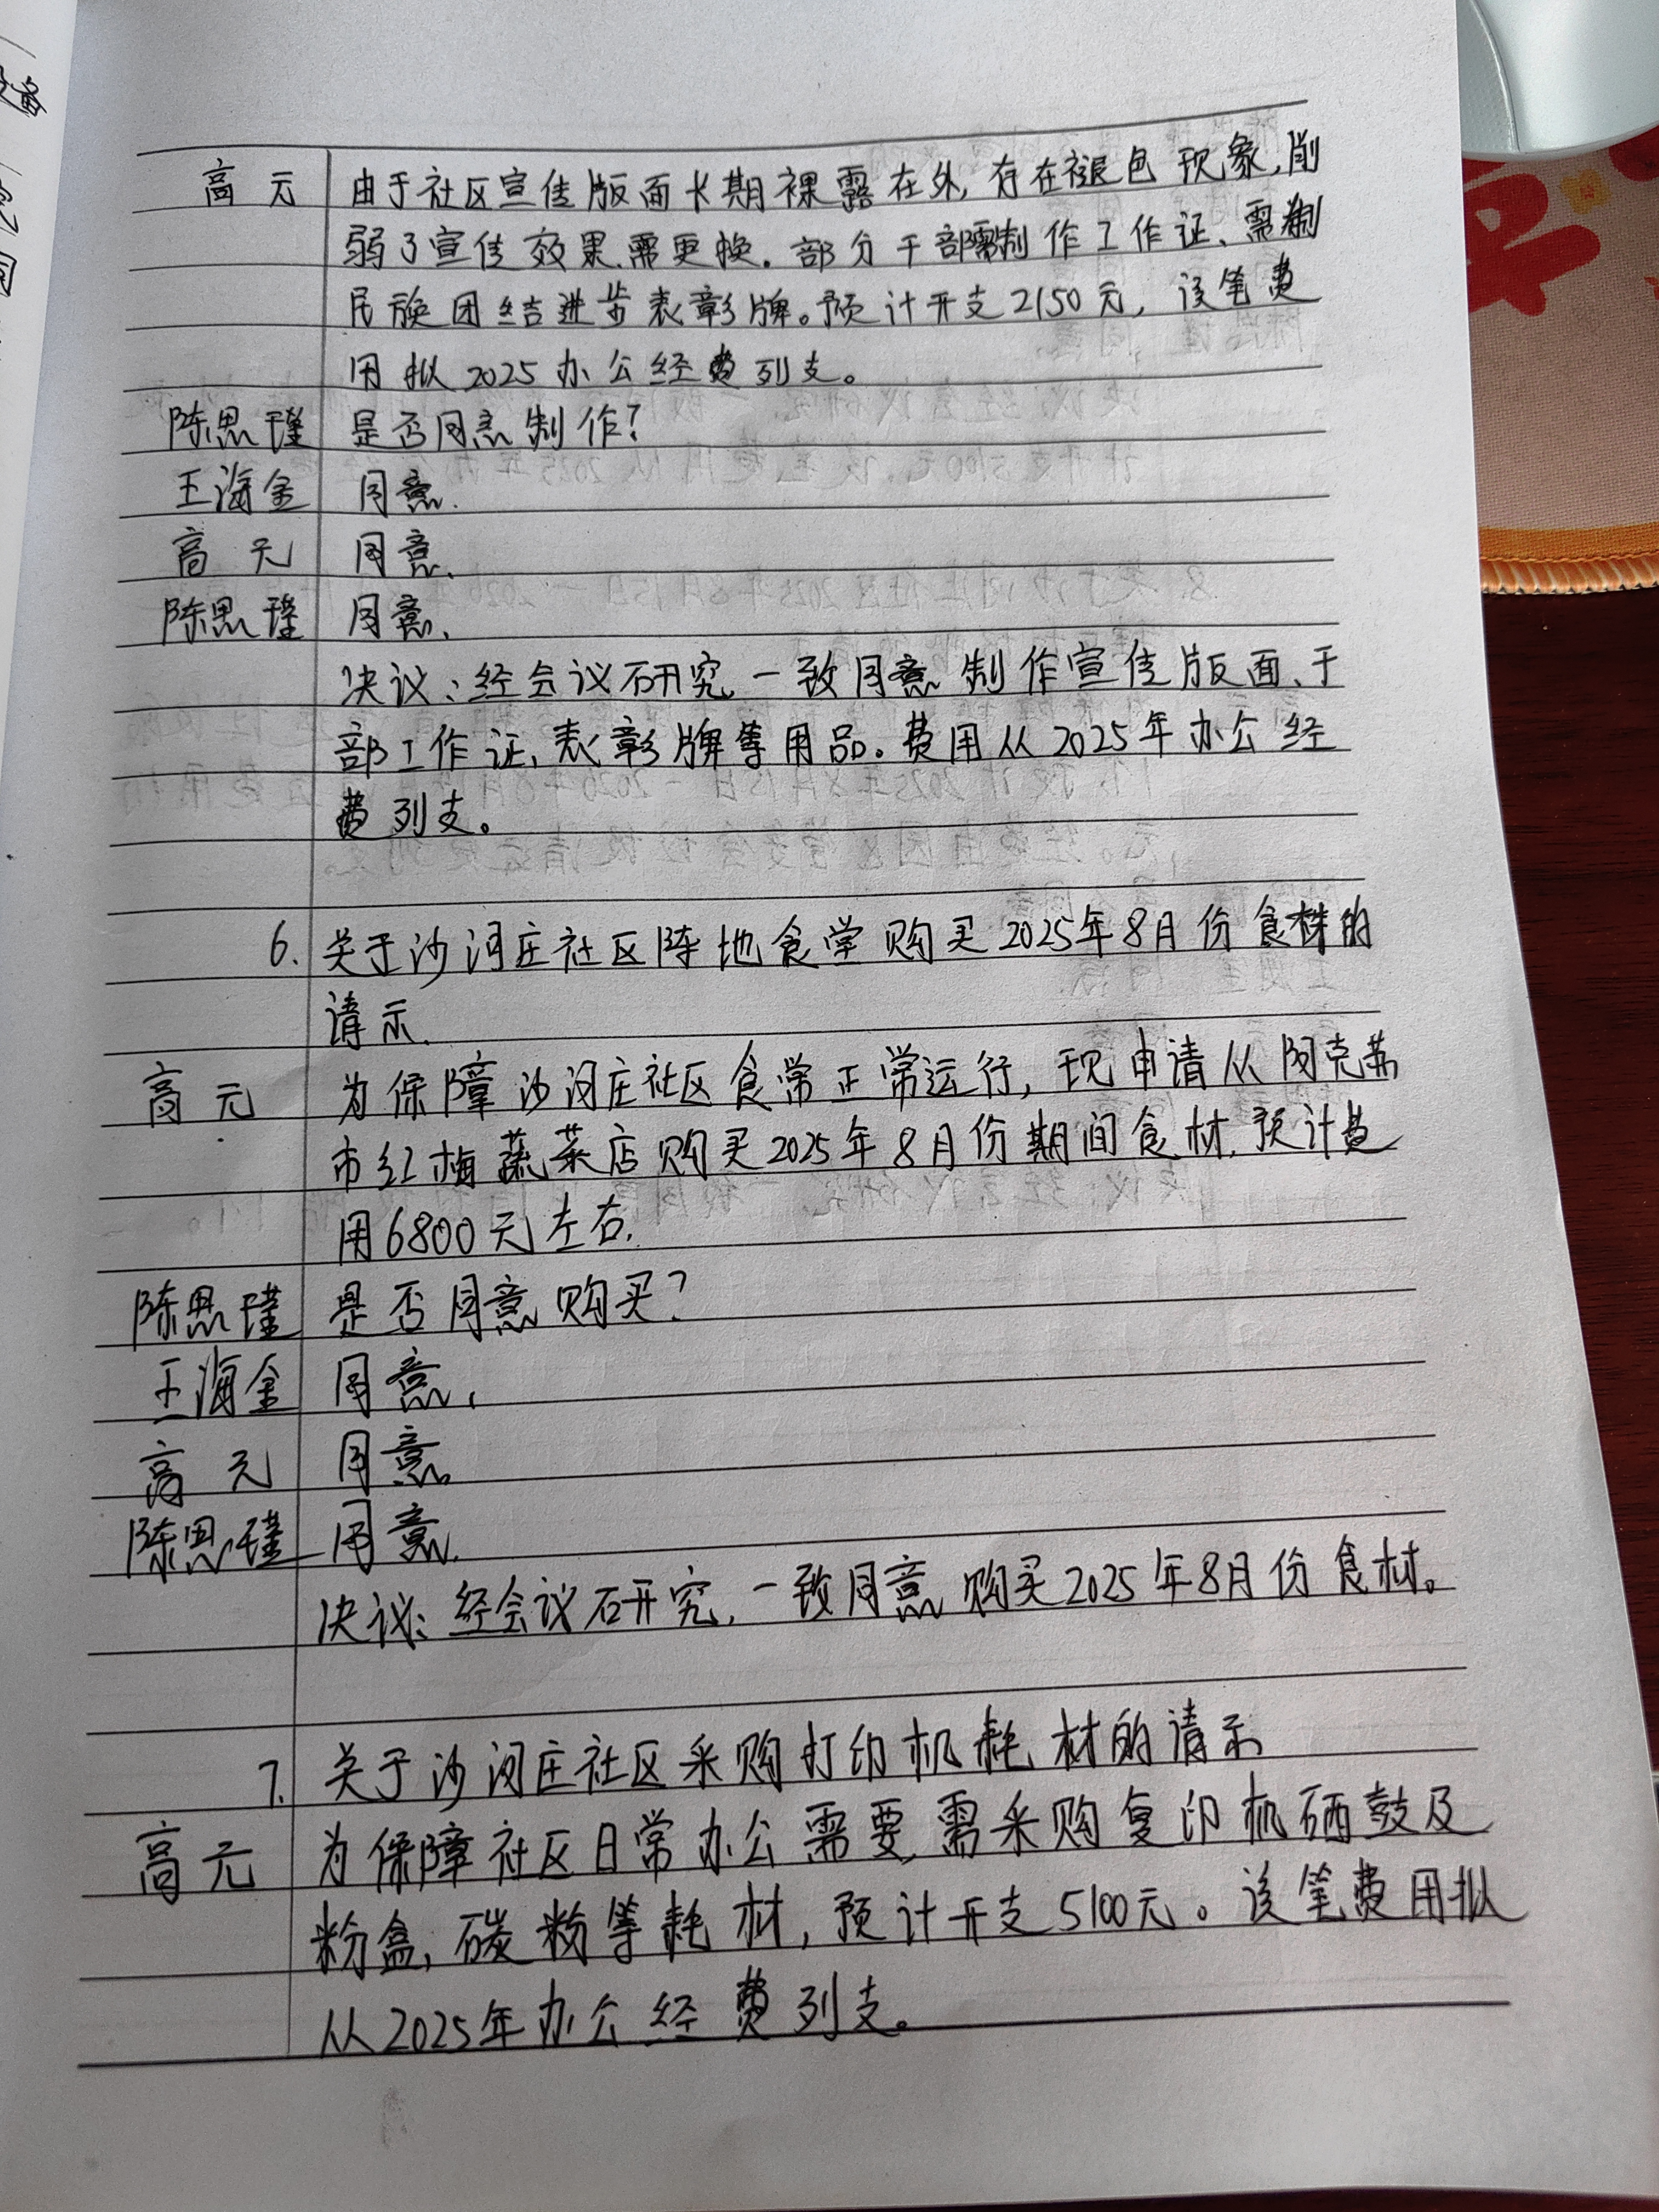 高元 由于社区宣传版面长期裸露在外,存在褪色现象,削
弱了宣传效果,需更换。部分干部需制作工作证、需制
民族团结进步表彰牌。预计开支2150元,该笔费
用拟2025办公经费列支。
陈思瑾 是否同意制作?
王海金 同意.
高元 同意.
陈思瑾 同意.
决议:经会议研究,一致同意制作宣传版面、干
部工作证、表彰牌等用品。费用从2025年办公经
费列支。
6. 关于沙河庄社区阵地食堂购买2025年8月份食材的
请示.
高元 为保障沙河庄社区食常正常运行,现申请从阿克苏
市红梅蔬菜店购买2025年8月份期间食材.预计费
用6800元左右.
陈思瑾 是否同意购买?
王海金 同意.
高元 同意.
陈思瑾 同意.
决议:经会议研究,一致同意购买2025年8月份食材。
7. 关于沙河庄社区采购打印机耗材的请示
高元 为保障社区日常办公需要,需采购复印机硒鼓及
粉盒,碳粉等耗材,预计开支5100元。该笔费用拟
从2025年办公经费列支。